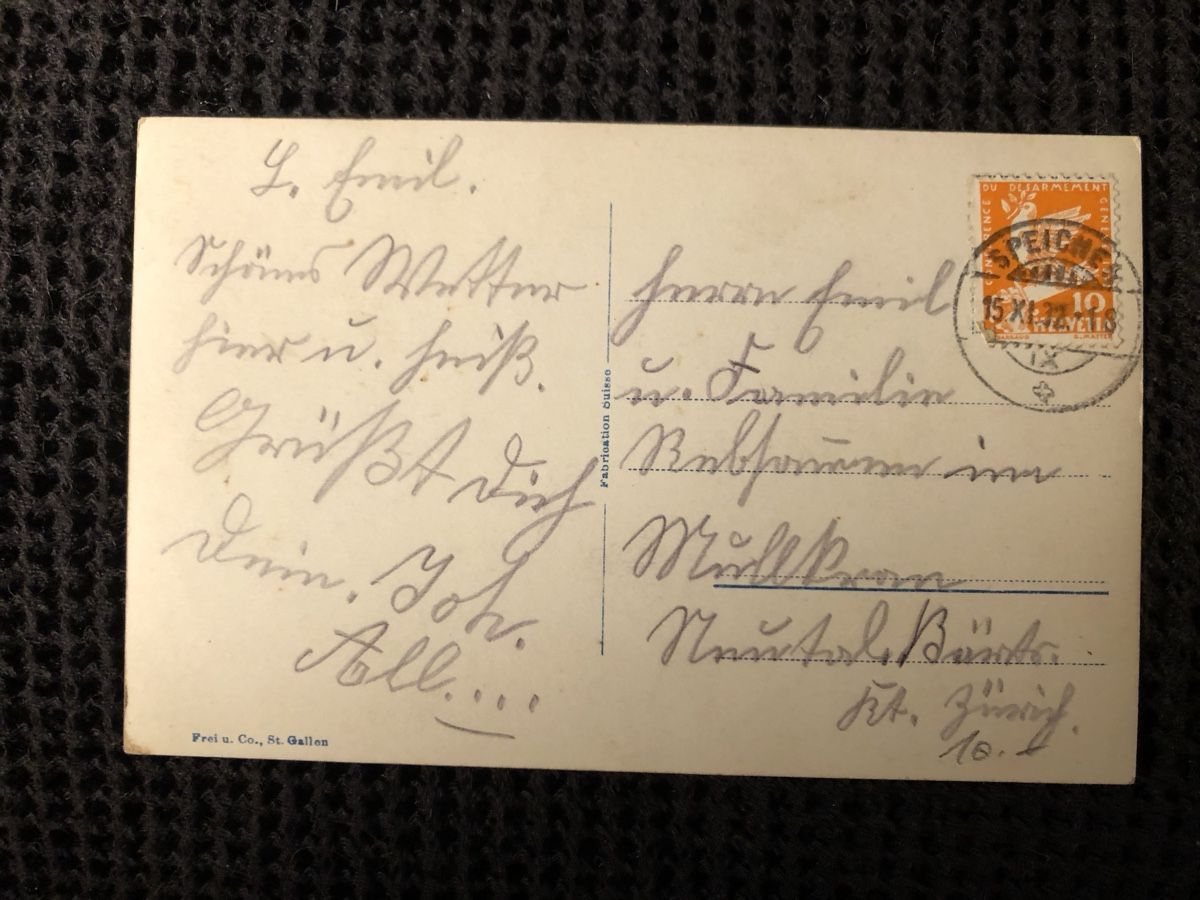 L. Emil.
Schönes Wetter
hier u. heiß.
Grüßt Dich
Dein. Joh.
All....
Frei u. Co., St. Gallen
Fabrication Suisse
CONFERENCE DU DESARMEMENT GENEVE
SPEICHER
15 XI 32 - 18
IX
10
HELVETIA
Herrn Emil
u. Familie
Rebsamen im
Neutal. Bärts.
Kt. Zürich.